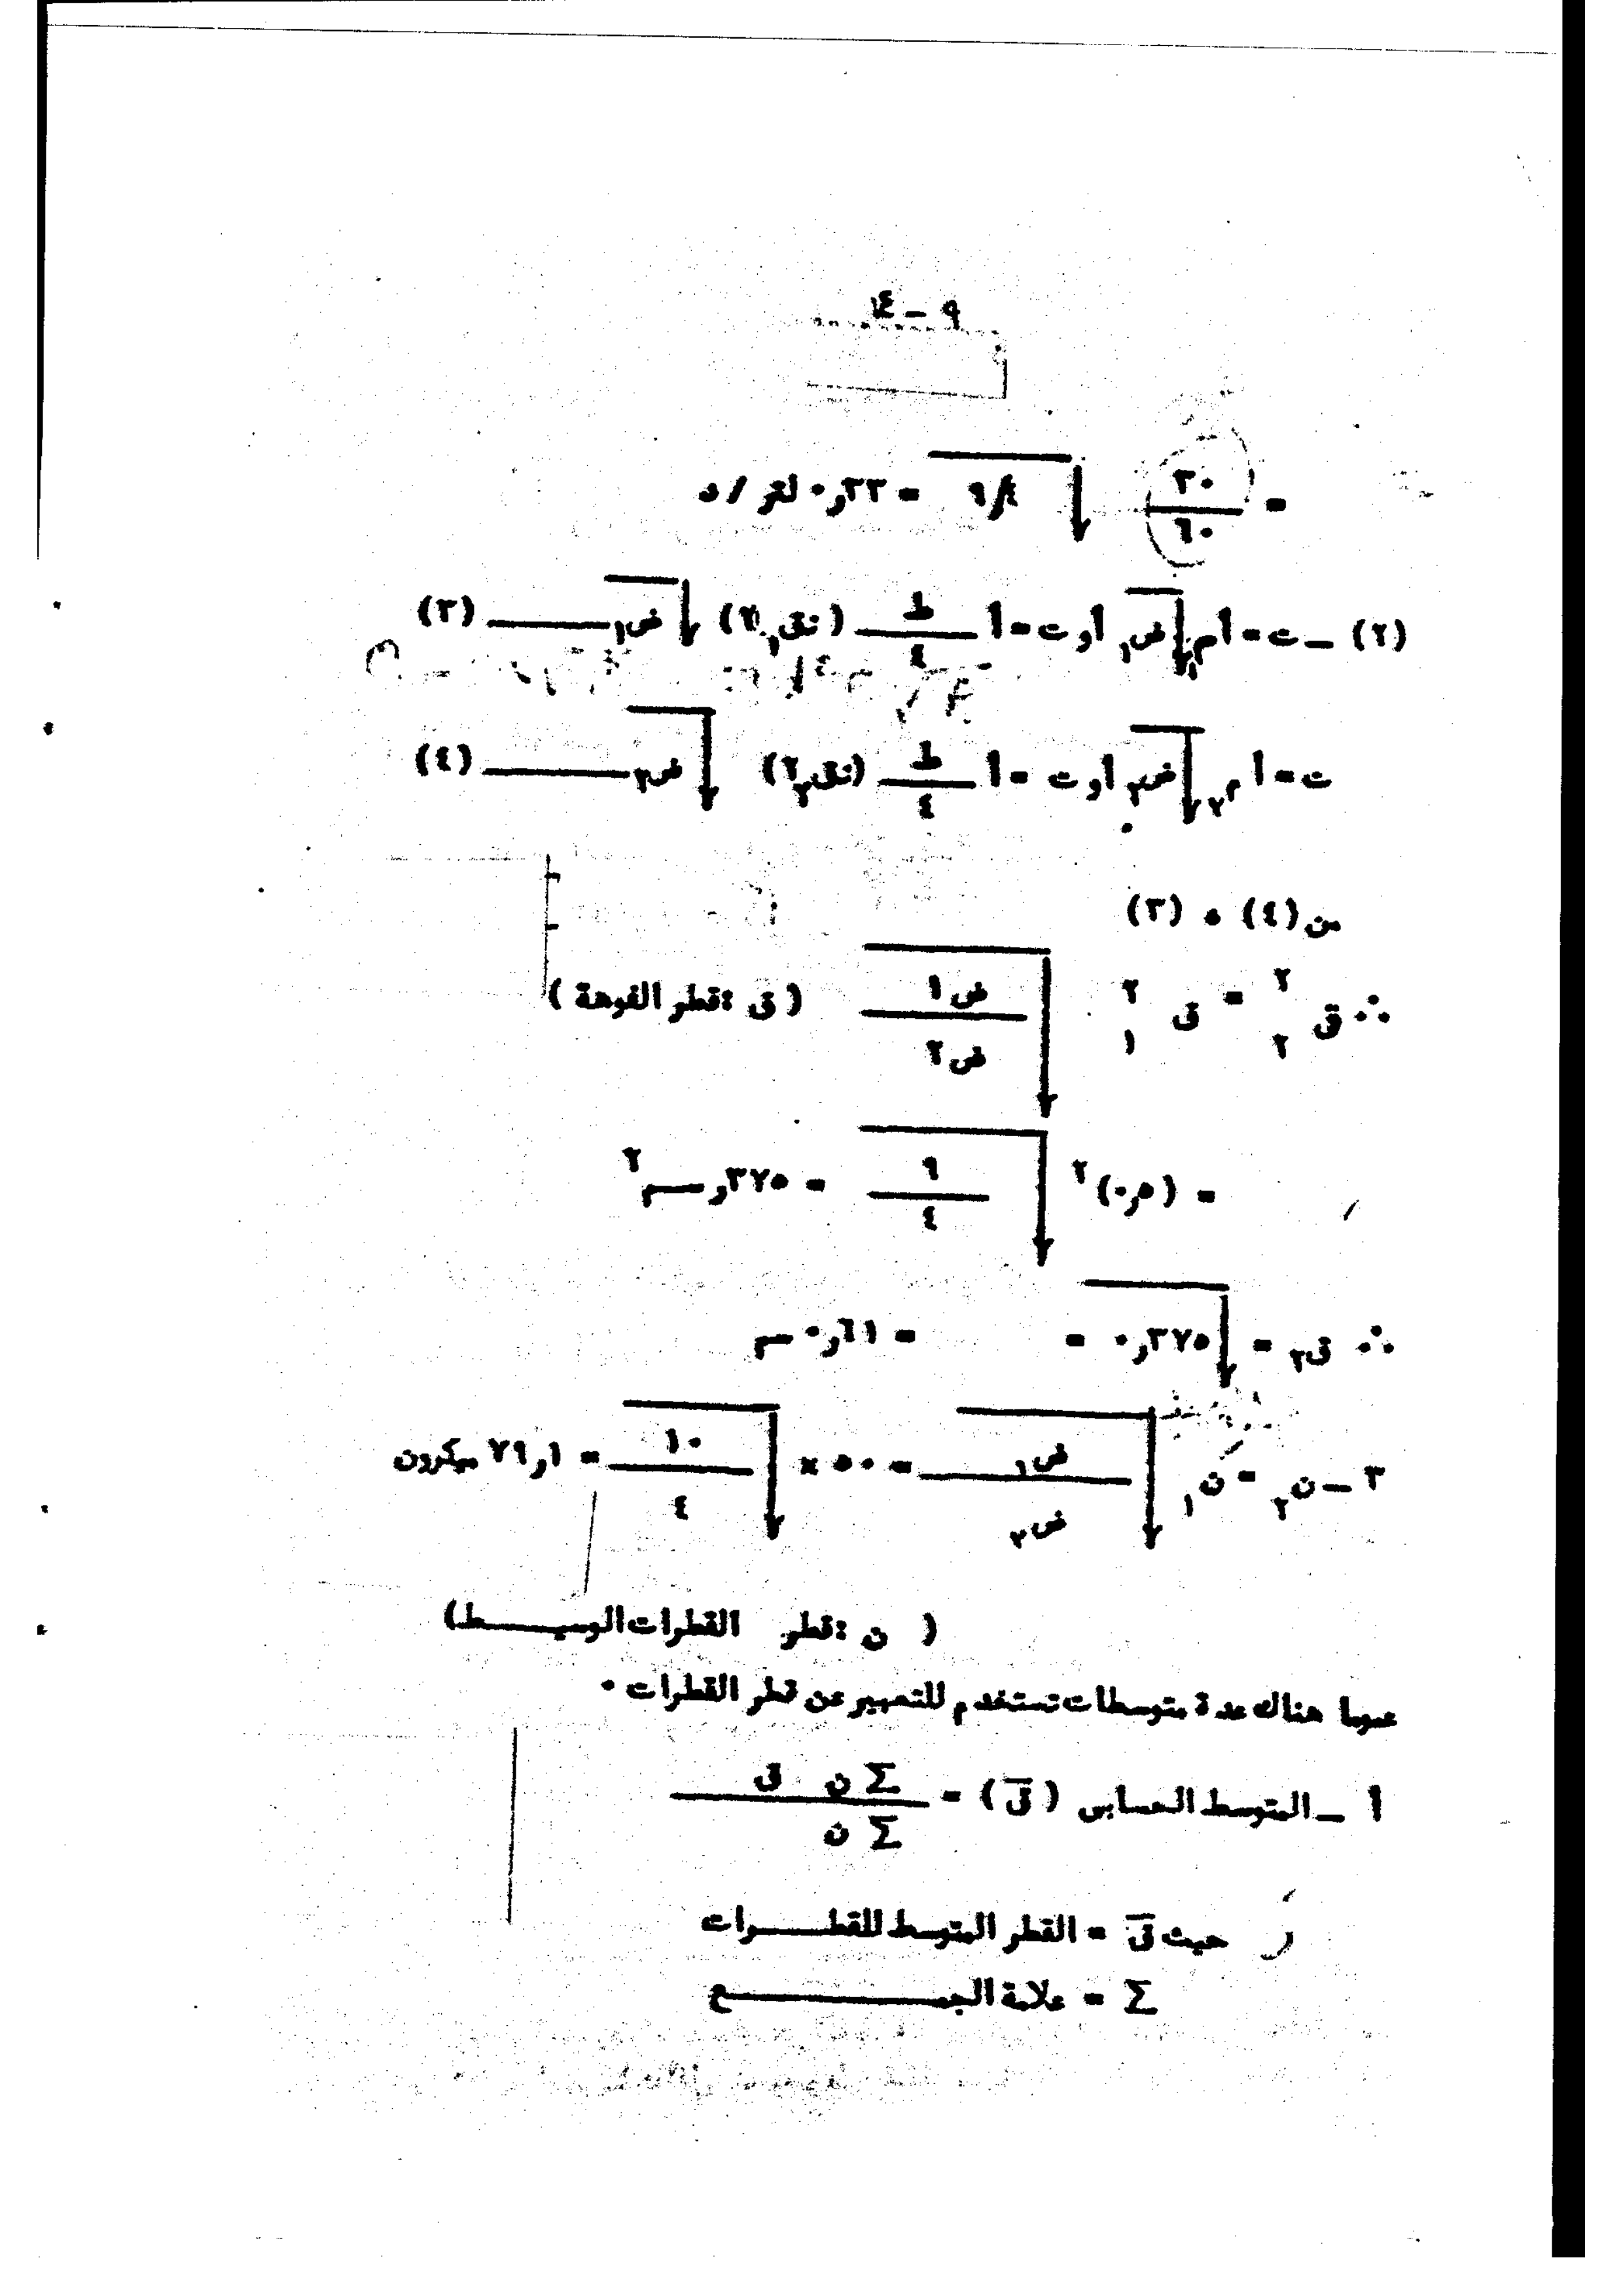 ٩ – ١٤
= ٣٠/٦٠ √٤/٩ = ٣٣ر٠ لتر / د
(٢) – ت = أ م١ √ض١ أو ت = أ ط/٤ (نق١٢) √ض١ ـــــ (٣)
ت = أ م٢ √ض٢ أو ت = أ ط/٤ (نق٢٢) √ض٢ ـــــ (٤)
من (٤) ، (٣)
∴ ق٢٢ = ق١٢ √ض١/ض٢ ( ق : قطر الفوهة )
= (٥ر٠)٢ √٩/٤ = ٣٧٥ر سم٢
∴ ق٢ = √٣٧٥ر٠ = = ٦١ر٠ سم
٣ – ن٢ = ن١ √ض١/ض٢ = ٥٠ × √١٠/٤ = ١ر٧٩ ميكرون
( ن : قطر القطرات الوسيـــط)
عموما هناك عدة متوسطات تستخدم للتعبير عن قطر القطرات ٠
أ – المتوسط الحسابي ( ق̅ ) = Σ ن ق / Σ ن
حيث ق̅ = القطر المتوسط للقطـــرات
Σ = علامة الجمـــــع